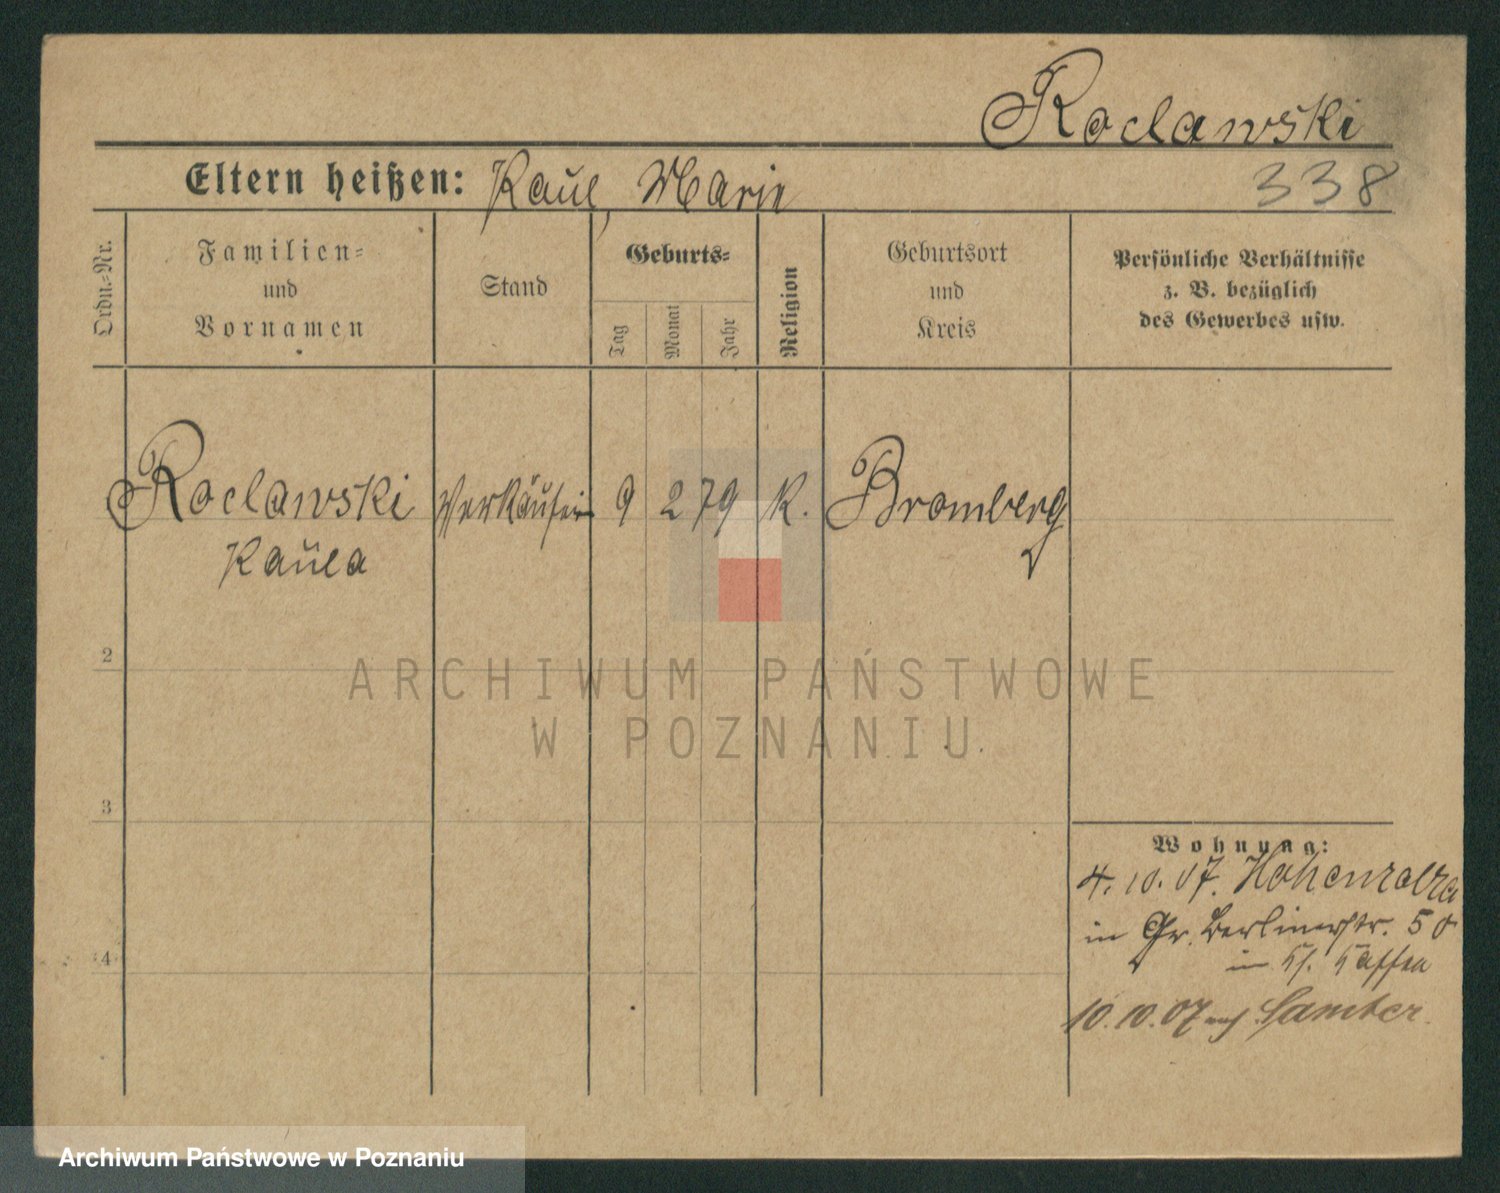 Roclawski
338
Eltern heißen: Paul, Marie
Ordn.-Nr.
Familien=
und
Vornamen
Stand
Geburts=
Tag
Monat
Jahr
Religion
Geburtsort
und
Kreis
Persönliche Verhältnisse
z. B. bezüglich
des Gewerbes usw.
Roclawski Verkäuferin 9 2 79 K. Bromberg
Paula
2
3
4
ARCHIWUM PAŃSTWOWE
W POZNANIU
Wohnung:
4. 10. 07. Hohensalza
in Gr. Berlinerstr. 50
in
10. 10. 07 Samter.
Archiwum Państwowe w Poznaniu